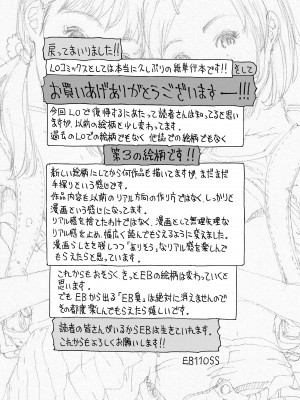 戻ってまいりました!!
LOコミックスとしては本当に久しぶりの紙単行本です!!そして
お買いあげありがとうございますー!!!
今回LOで復帰するにあたって読者さんは知ってると思い
ますが、以前の絵柄と少し変わってます。
過去のLOでの絵柄でもなく他誌での絵柄でもなく
第3の絵柄です!!
新しい絵柄にしてから何作品も描いてますが、まだまだ
手探りという感じです。
作品内容も以前のリアル方向の作り方ではなく、しっかりと
漫画という感じになってます。
リアル感を捨てたわけではなく、漫画として無理矢理な
リアル感を止め、幅広く読んでもらえるように変えました。
漫画らしさを残しつつ「ありそう」なリアル感を楽しんで
もらえたらと思っています。
これからもおそらくきっとEBの絵柄は変わっていくと
思います。
でもEBから出る「EB臭」は絶対に消えませんので
その都度楽しんでもらえたら嬉しいです。
読者の皆さんがいるからEBは生きていれます。
これからもよろしくお願いします!!
EB110SS